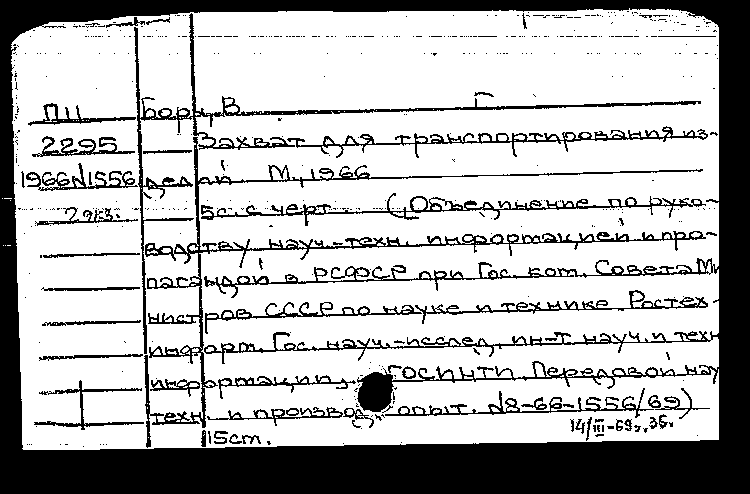 П11 Борц, В. Г
2295 Захват для транспортирования из-
1966 N1556 делий. М., 1966
2 экз. 5с. с черт. (Объединение по руко-
водству науч.-техн. информацией и про-
пагандой в РСФСР при Гос. ком. Совета Ми
нистров СССР по науке и технике. Ростех-
информ. Гос. науч.-исслед. ин-т науч. и техн
информации, ГОСИНТИ. Передовой нау
техн. и производ. опыт. N8-66-1556/69)
15cm. 14/III-69г. 36.